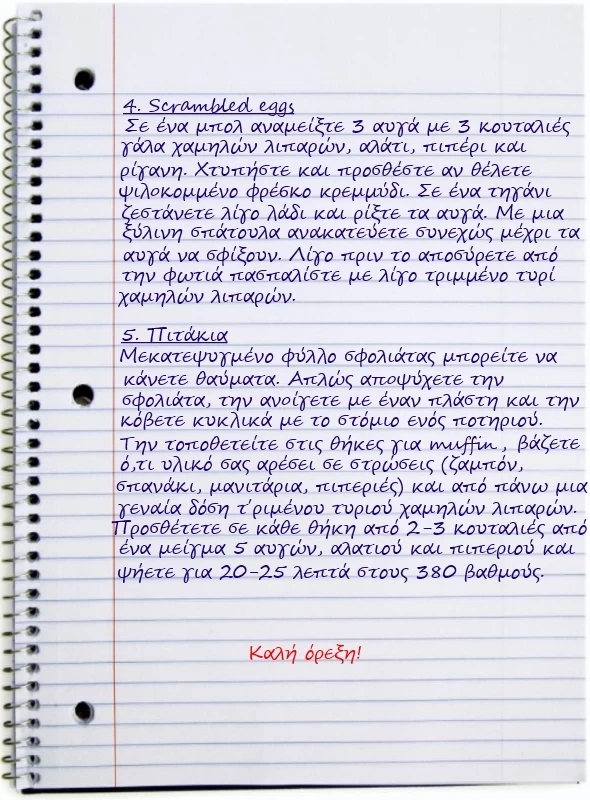 4. Scrambled eggs
Σε ένα μπολ αναμείξτε 3 αυγά με 3 κουταλιές
γάλα χαμηλών λιπαρών, αλάτι, πιπέρι και
ρίγανη. Χτυπήστε και προσθέστε αν θέλετε
ψιλοκομμένο φρέσκο κρεμμύδι. Σε ένα τηγάνι
ζεστάνετε λίγο λάδι και ρίξτε τα αυγά. Με μια
ξύλινη σπάτουλα ανακατεύετε συνεχώς μέχρι τα
αυγά να σφίξουν. Λίγο πριν το αποσύρετε από
την φωτιά πασπαλίστε με λίγο τριμμένο τυρί
χαμηλών λιπαρών.
5. Πιτάκια
Μεκατεψυγμένο φύλλο σφολιάτας μπορείτε να
κάνετε θαύματα. Απλώς αποψύχετε την
σφολιάτα, την ανοίγετε με έναν πλάστη και την
κόβετε κυκλικά με το στόμιο ενός ποτηριού.
Την τοποθετείτε στις θήκες για muffin , βάζετε
ό,τι υλικό σας αρέσει σε στρώσεις (ζαμπόν,
σπανάκι, μανιτάρια, πιπεριές) και από πάνω μια
γεναία δόση τ΄ριμένου τυριού χαμηλών λιπαρών.
Προσθέτετε σε κάθε θήκη από 2-3 κουταλιές από
ένα μείγμα 5 αυγών, αλατιού και πιπεριού και
ψήετε για 20-25 λεπτά στους 380 βαθμούς.
Καλή όρεξη!